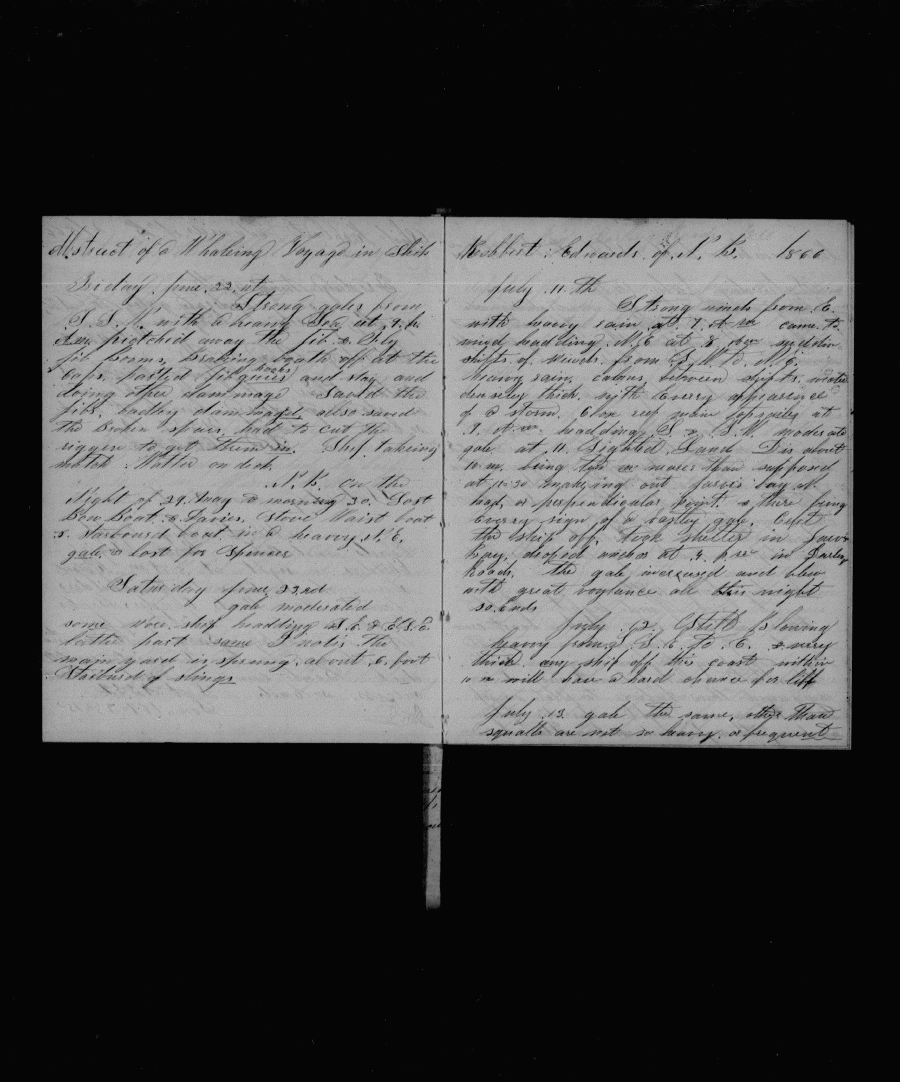 Abstract of a Whaleing Voyage in Ship
Friday. June. 22. at
Strong gales from
S.S.W, with a heavy Sea at 7. P.
pictched away the jib & Fly
jib booms, breaking booth off at the
caps. parted jib guies and stay and
doing other dammage Saved the
jibs. badley dammaged, allso saved
the broken spars, had to cut the
rigger to get them in. Ship takeing
much Watter on deck.
N.B. On the
Night of 29. May & morning 30. Lost
Bow Boat & Davies, stove Waist boat
& Starbourd boat in a heavy N.E.
gale. & lost for Spencer
Saturday June 23rd
gale moderated
some Nore. Ship headding S.E. & E.S.E.
latter part same I notis the
main yard is sprung. about 6. foot
Starburd of slings
Robbert. Edwards. of N. B. 1866
July. 11. th
Strong winds from E.
with heavy rain at 7. A m came to
wind headding N.E at 8 sudden
shifts of winds. from S.W to N.E.
Heavy rain, calms between shifts.
densley thick. with Every appearence
of a storm. Close reef main topsails at
9. A m. headding S & S.W. moderate
gale at 11. Sighted Land Dis about
10 m. being ten m nearer than suposed
at 12-30 makeing out Jarvis bay
head, or perpendicular point & there being
Every sign of a gale. Kept
the Ship off. took shelter in Jarvis
bay. droped anchor at 3 P m in Darling
roads. the gale increased and blew
with great voylance all this night
So Ends
July. 12. blowing
heavy from S.E. to E. & very
thick. any ship off this coast within
10 m will have a hard chance for life
July. 13. gale the same, other than
squalls are not so heavy. or frequent